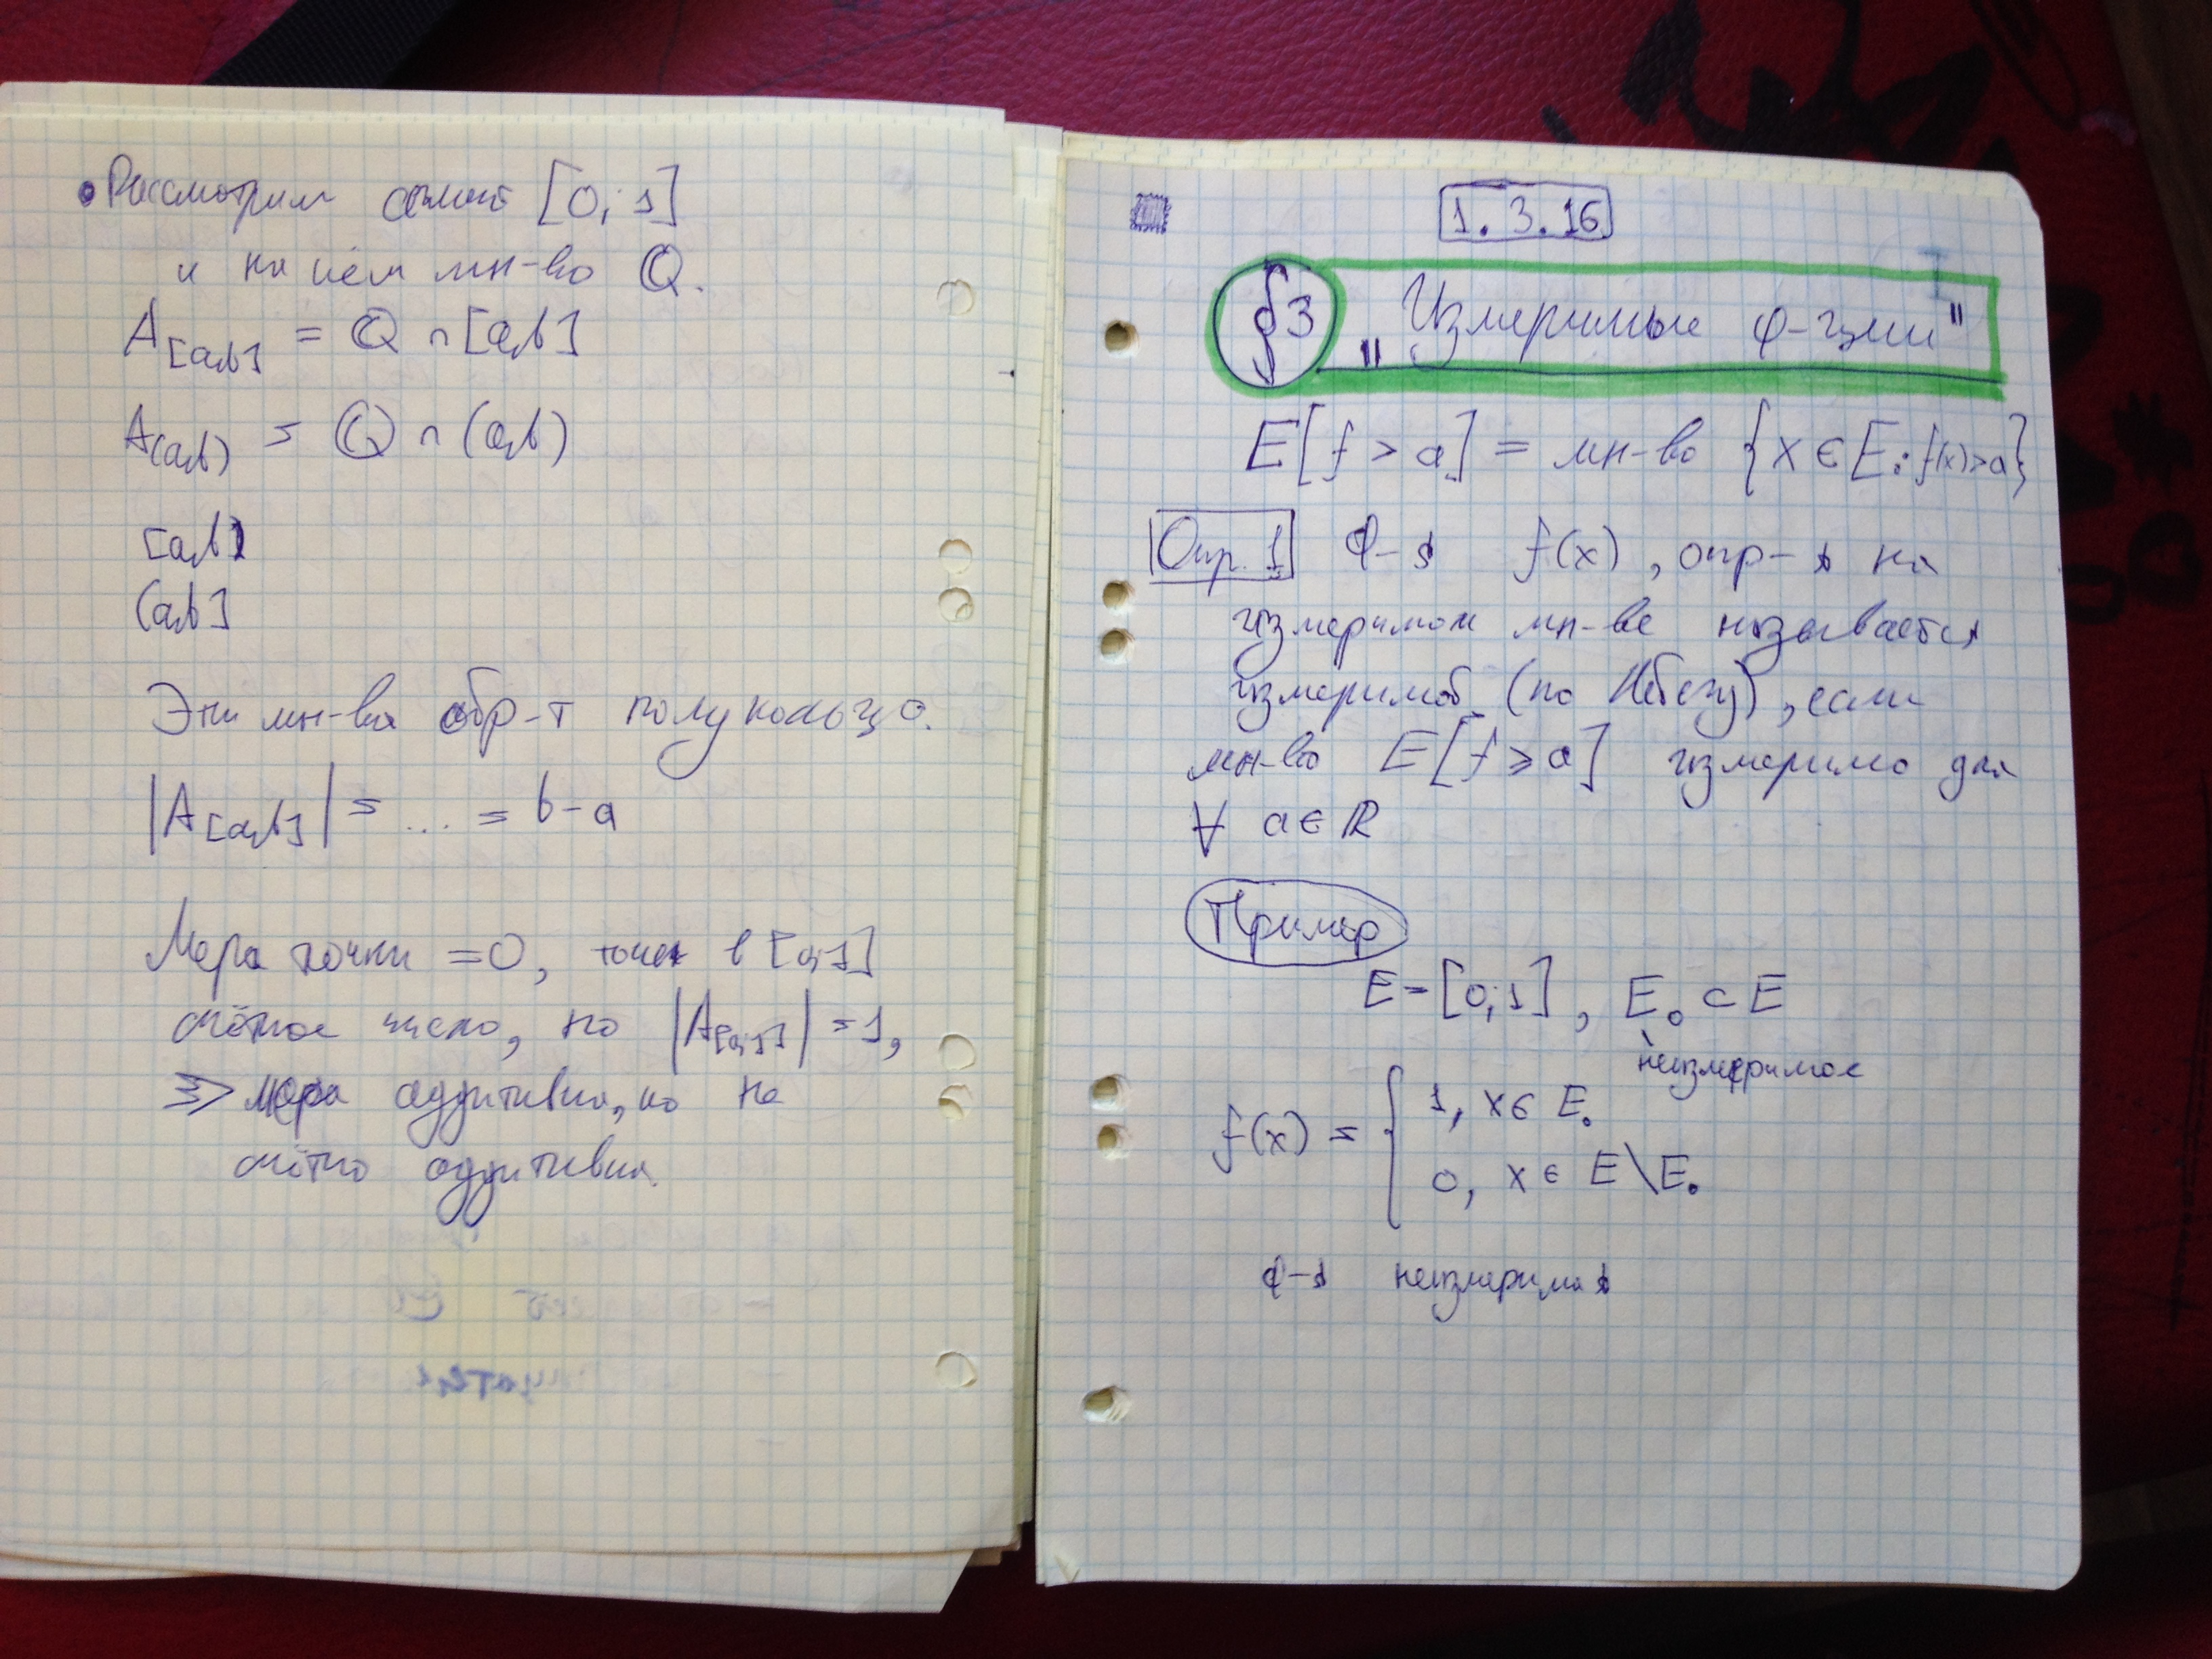 Рассмотрим [0; 1]
и на нём мн-во ℚ.
A[a,b] = ℚ ∩ [a,b]
A(a,b) = ℚ ∩ (a,b)
[a,b)
(a,b]
Эти мн-ва обр-т полукольцо.
|A[a,b]| = ... = b - a
Мера точки = 0, точек в [0,1]
счётное число, но |A[0;1]| = 1,
⇒ мера аддитивна, но не
счётно аддитивна.
1. 3. 16
§3 „Измеримые ф-ции"
E[f > a] = мн-во {x ∈ E: f(x)>a}
Опр. 1 Ф-я f(x), опр-я на
измеримом мн-ве называется
измеримой (по Лебегу), если
мн-во E[f ⩾ a] измеримо для
∀ a ∈ ℝ
Пример
E = [0; 1], E₀ ⊂ E
неизмеримое
f(x) = { 1, x ∈ E₀
0, x ∈ E\E₀
ф-я неизмеримая